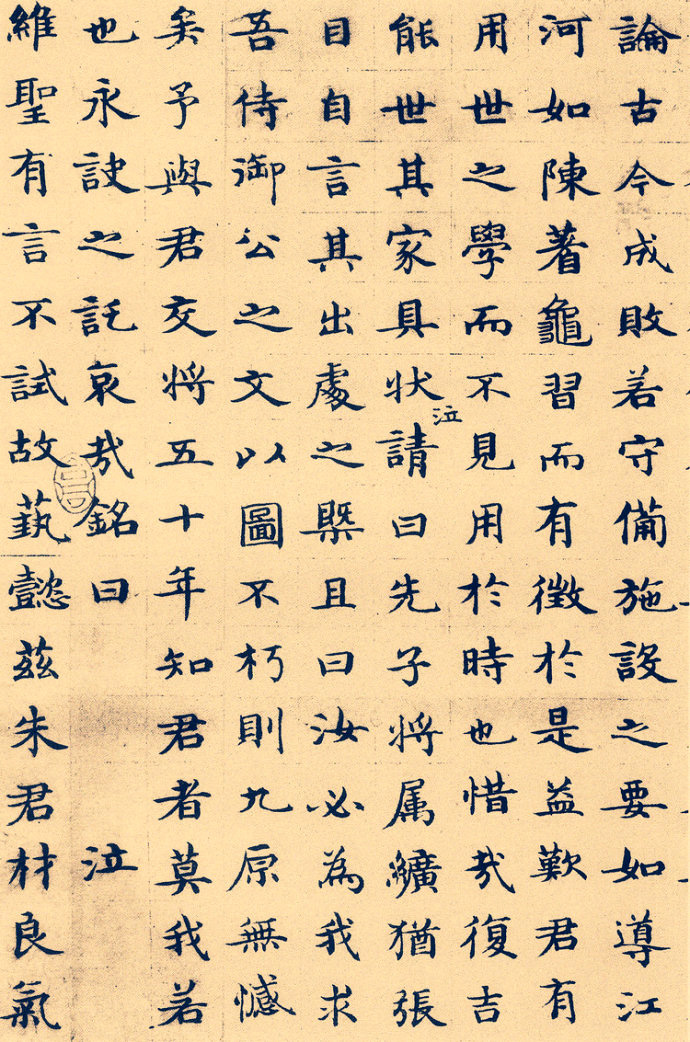 論古今成敗若守備施設之要如導江
河如陳著龜習而有徵於是益歎君有
用世之學而不見用於時也惜哉復吉
能世其家具状泣請曰先子將属纊猶張
目自言其出處之槩且曰汝必為我求
吾侍御公之文以圖不朽則九原無憾
矣予與君交將五十年知君者莫我若
也永訣之託哀哉銘曰 泣
維聖有言不試故藝懿茲朱君材良氣